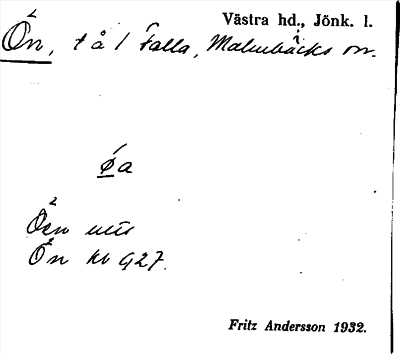 Västra hd., Jönk. l.
Ön, t å i Falla, Malmbäcks sn.
øa
Öen
Ön kb 927.
Fritz Andersson 1932.